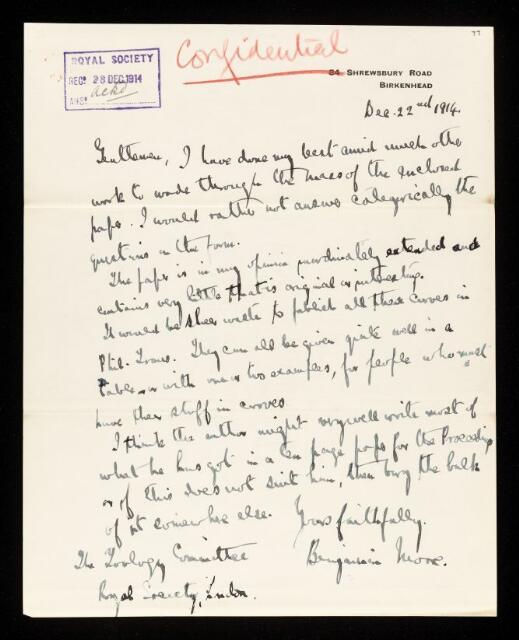 77
Confidential
ROYAL SOCIETY
REC? 28 DEC. 1914
ackd
ANS?
84 SHREWSBURY ROAD
BIRKENHEAD
Dec. 22nd 1914.
Gentlemen, I have done my best amid much other
work to wade through the mass of the enclosed
paper. I would rather not answer categorically the
questions in the form.
The paper is in my opinion inordinately extended and
contains very little that is original or interesting.
It would be sheer waste to publish all these curves in
Phil. Trans. They can all be given quite well in a
table or with one or two examples, for people who must
have their stuff in curves.
I think the author might very well write most of
what he has got in a ten page paper for the Proceedings
or if this does not suit him, then bury the bulk
of it somewhere else. Yours faithfully.
The Zoology Committee Benjamin Moore.
Royal Society, London.